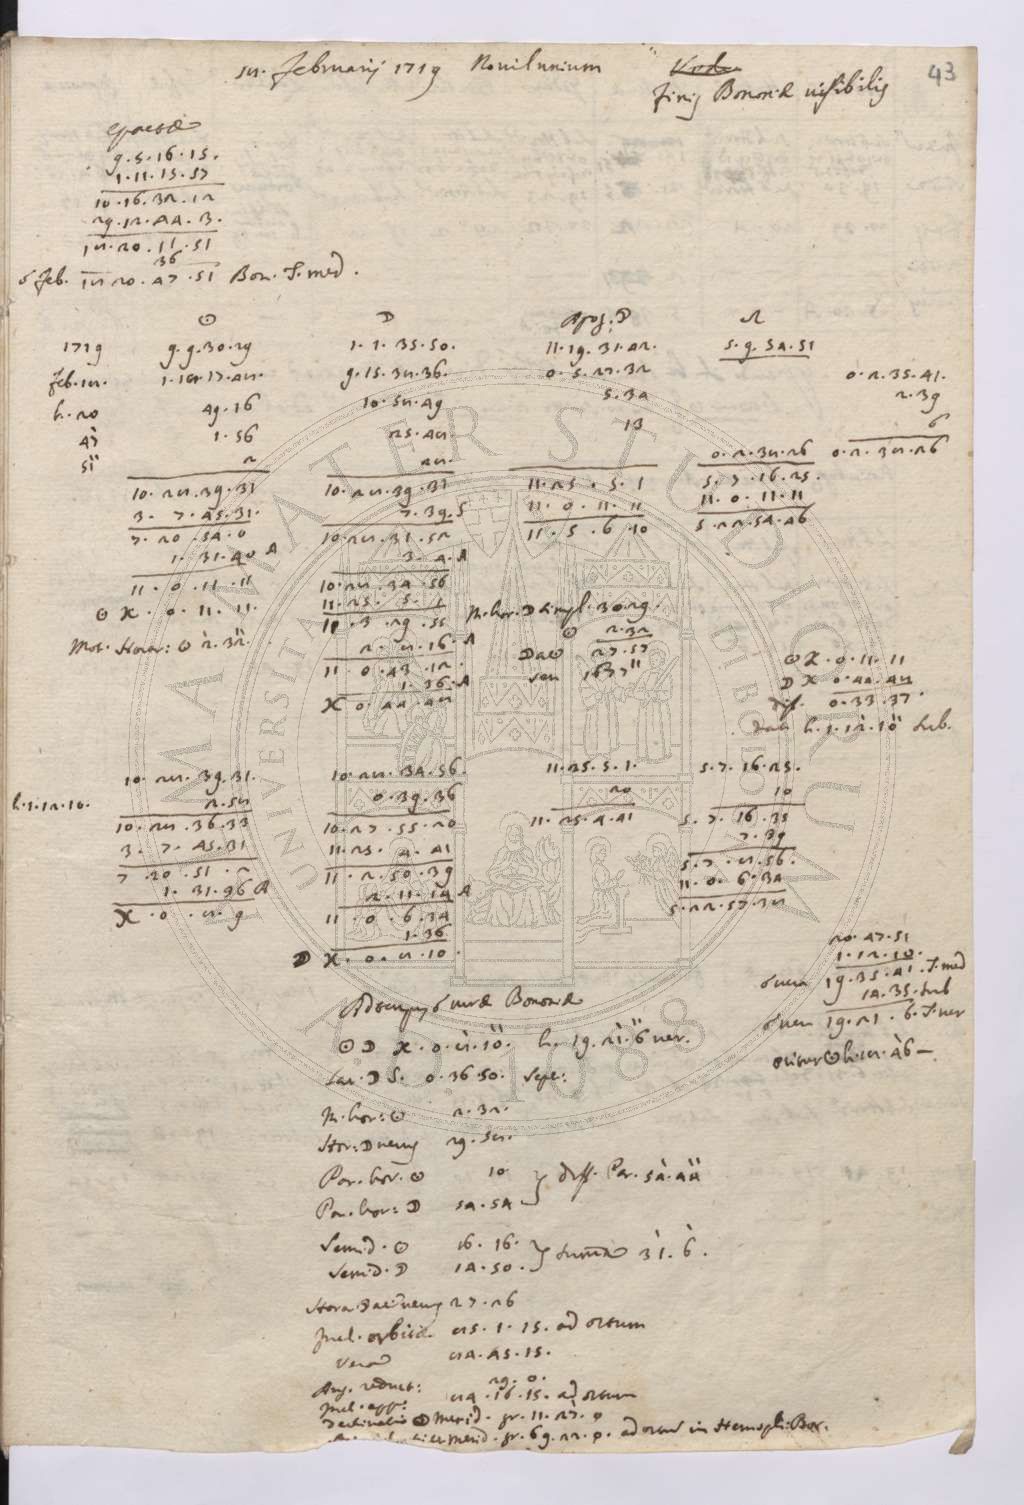 18. Februarij 1719 Novilunium
Finis Bononiæ visibilis
43
epactæ
9.5.16.15.
1.11.15.57
10.16.32.12
29.12.44.3.
18.20.11.51
36
☌ Feb. 18 20.47.51 Bon. T. med.
☉ ☽ Apog. ☽ ☊
1719 9.9.30.29 1.1.35.50. 11.19.31.42. 5.9.54.51
Feb. 18. 1.18.17.48. 9.15.38.36. 0.5.27.32 0.2.35.41.
h. 20 49.16 10.58.49 5.34 2.39
47' 1.56 25.48. 13 6
51" 2 28. 0.2.38.26 0.2.38.26
10.28.39.31 10.28.39.31 11.25.5.1 5.7.16.25.
3.7.45.31. 7.39.S 11.0.11.11 11.0.11.11
7.20.54.0 10.28.31.52 11.5.6.10 5.22.54.46
1.31.40 A 3.4.A
11.0.11.11 10.28.34.56
☉ X.0.11.11. 11.25.5.1
11.3.29.55
Mot. Horar: ☉ 2'.32". 2.8.16.A
11.0.43.12.
1.36.A
X 0.44.48
M. hor. ☽ simpl. 30.29.
☉ 2.32
☽ a ☉ 27.57
seu 1677"
☉ X.0.11.11
☽ X 0.44.48
diff. 0.33.37.
dant h.1.12'.10" sub.
10.28.39.31. 10.28.34.56. 11.25.5.1. 5.7.16.25.
h.1.12.10. 2.58 0.39.36 20 10
10.28.36.33 10.27.55.20 11.25.4.41 5.7.16.35
3.7.45.31 11.25.4.41 7.39
7.20.51.2 11.2.50.39 5.7.8.56.
1.31.36 A 2.11.14 A 11.0.6.34
X.0.8.9 11.0.6.34 5.22.57.38
1.36
☽ X.0.8.10.
20.47.51
1.12.10.
☌ vera 19.35.41.T.med
14.35.sub
☌ vera 19.21.6.T.ver
oritur ☉ h.18.46'
Ad tempus ☌ veræ Bononiæ
☉ ☽ X.0.8'.10". h. 19.21'.6" ver.
Lat. ☽ S. 0.36.50. Sept:
M. hor: ☉ 2.32.
Hor: ☽ verus 29.58.
Par. hor. ☉ 10 } diff. Par. 54'.44"
Par. hor: ☽ 54.54
Semid. ☉ 16.16. } summa 31'.6".
Semid. ☽ 14.50.
Hora. ☽ a ☉ verus 27.26
Incl. orbitæ 85.1.15. ad ortum
Vera 84.45.15.
Ang. reduct: 29.0.
Incl. app: 84.16.15. ad ortum
Declinatio ☉ Merid. gr. 11.27.0
Merid. gr. 69.22.0. ad ortum in Hemisph. Bor.